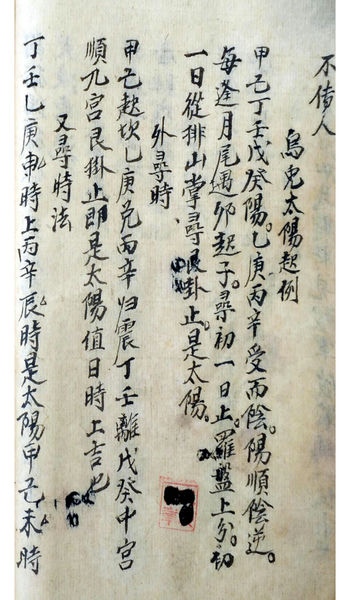 不借人
烏兔太陽起例
甲己丁壬戊癸陽。乙庚丙辛受而陰。陽順陰逆。
每逢一月尾遇卯起子。尋初一日止。羅盤上分。初
一日從排山掌尋艮掛止。是太陽。
外尋時、
甲己起坎乙庚兌丙辛归震丁壬離戊癸中宮
順九宮艮掛止即是太陽值日時上吉也
又尋時法
丁壬乙庚申時上丙辛辰時是太陽甲己未時